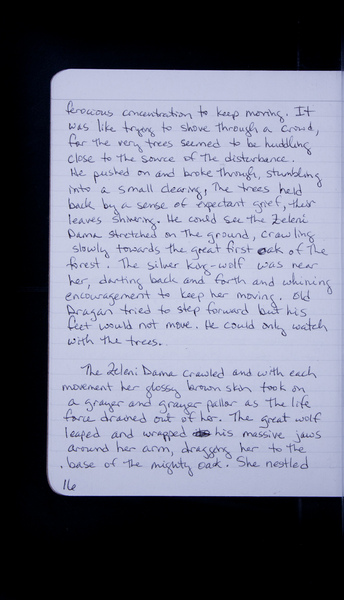 ferocious concentration to keep moving. It
was like trying to shove through a crowd,
for the very trees seemed to be huddling
close to the source of the disturbance.
He pushed on and broke through, stumbling
into a small clearing, The trees held
back by a sense of expectant grief, their
leaves shivering. He could see the Zeleni
Dama stretched on the ground, crawling
slowly towards the great first oak of the
forest. The silver king-wolf was near
her, darting back and forth and whining
encouragement to keep her moving. Old
Dragan tried to step forward but his
feet would not move. He could only watch
with the trees.
The Zeleni Dama crawled and with each
movement her glossy brown skin took on
a grayer and grayer pallor as the life
force drained out of her. The great wolf
leaped and wrapped his massive jaws
around her arm, dragging her to the
base of the mighty oak. She nestled
16